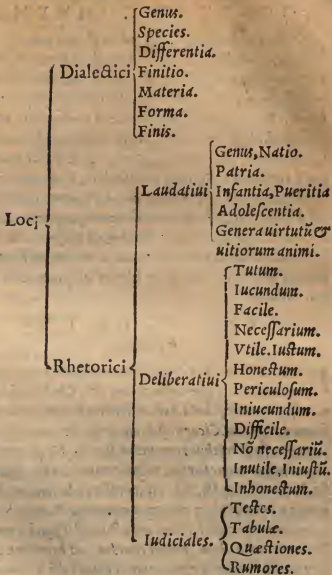 Loci
Dialectici
Genus.
Species.
Differentia.
Finitio.
Materia.
Forma.
Finis.
Rhetorici
Laudatiui
Genus, Natio.
Patria.
Infantia, Pueritia
Adolescentia.
Genera uirtutũ &
uitiorum animi.
Deliberatiui
Tutum.
Iucundum.
Facile.
Necessarium.
Vtile. Iustum.
Honestum.
Periculosum.
Iniucundum.
Difficile.
Nõ necessariũ.
Inutile, Iniustũ.
Inhonestum.
Iudiciales.
Testes.
Tabulæ.
Quæstiones.
Rumores.